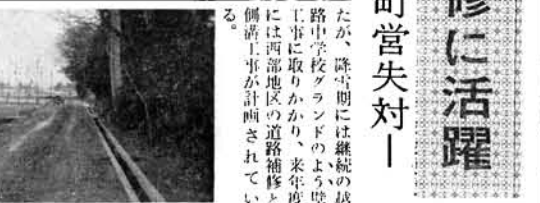 修に活躍
町営失対―
たが、降雪期には継続の越
路中学校グランドのよう壁
工事に取りかかり、来年度
には西部地区の道路補修と
側溝工事が計画されてい
る。